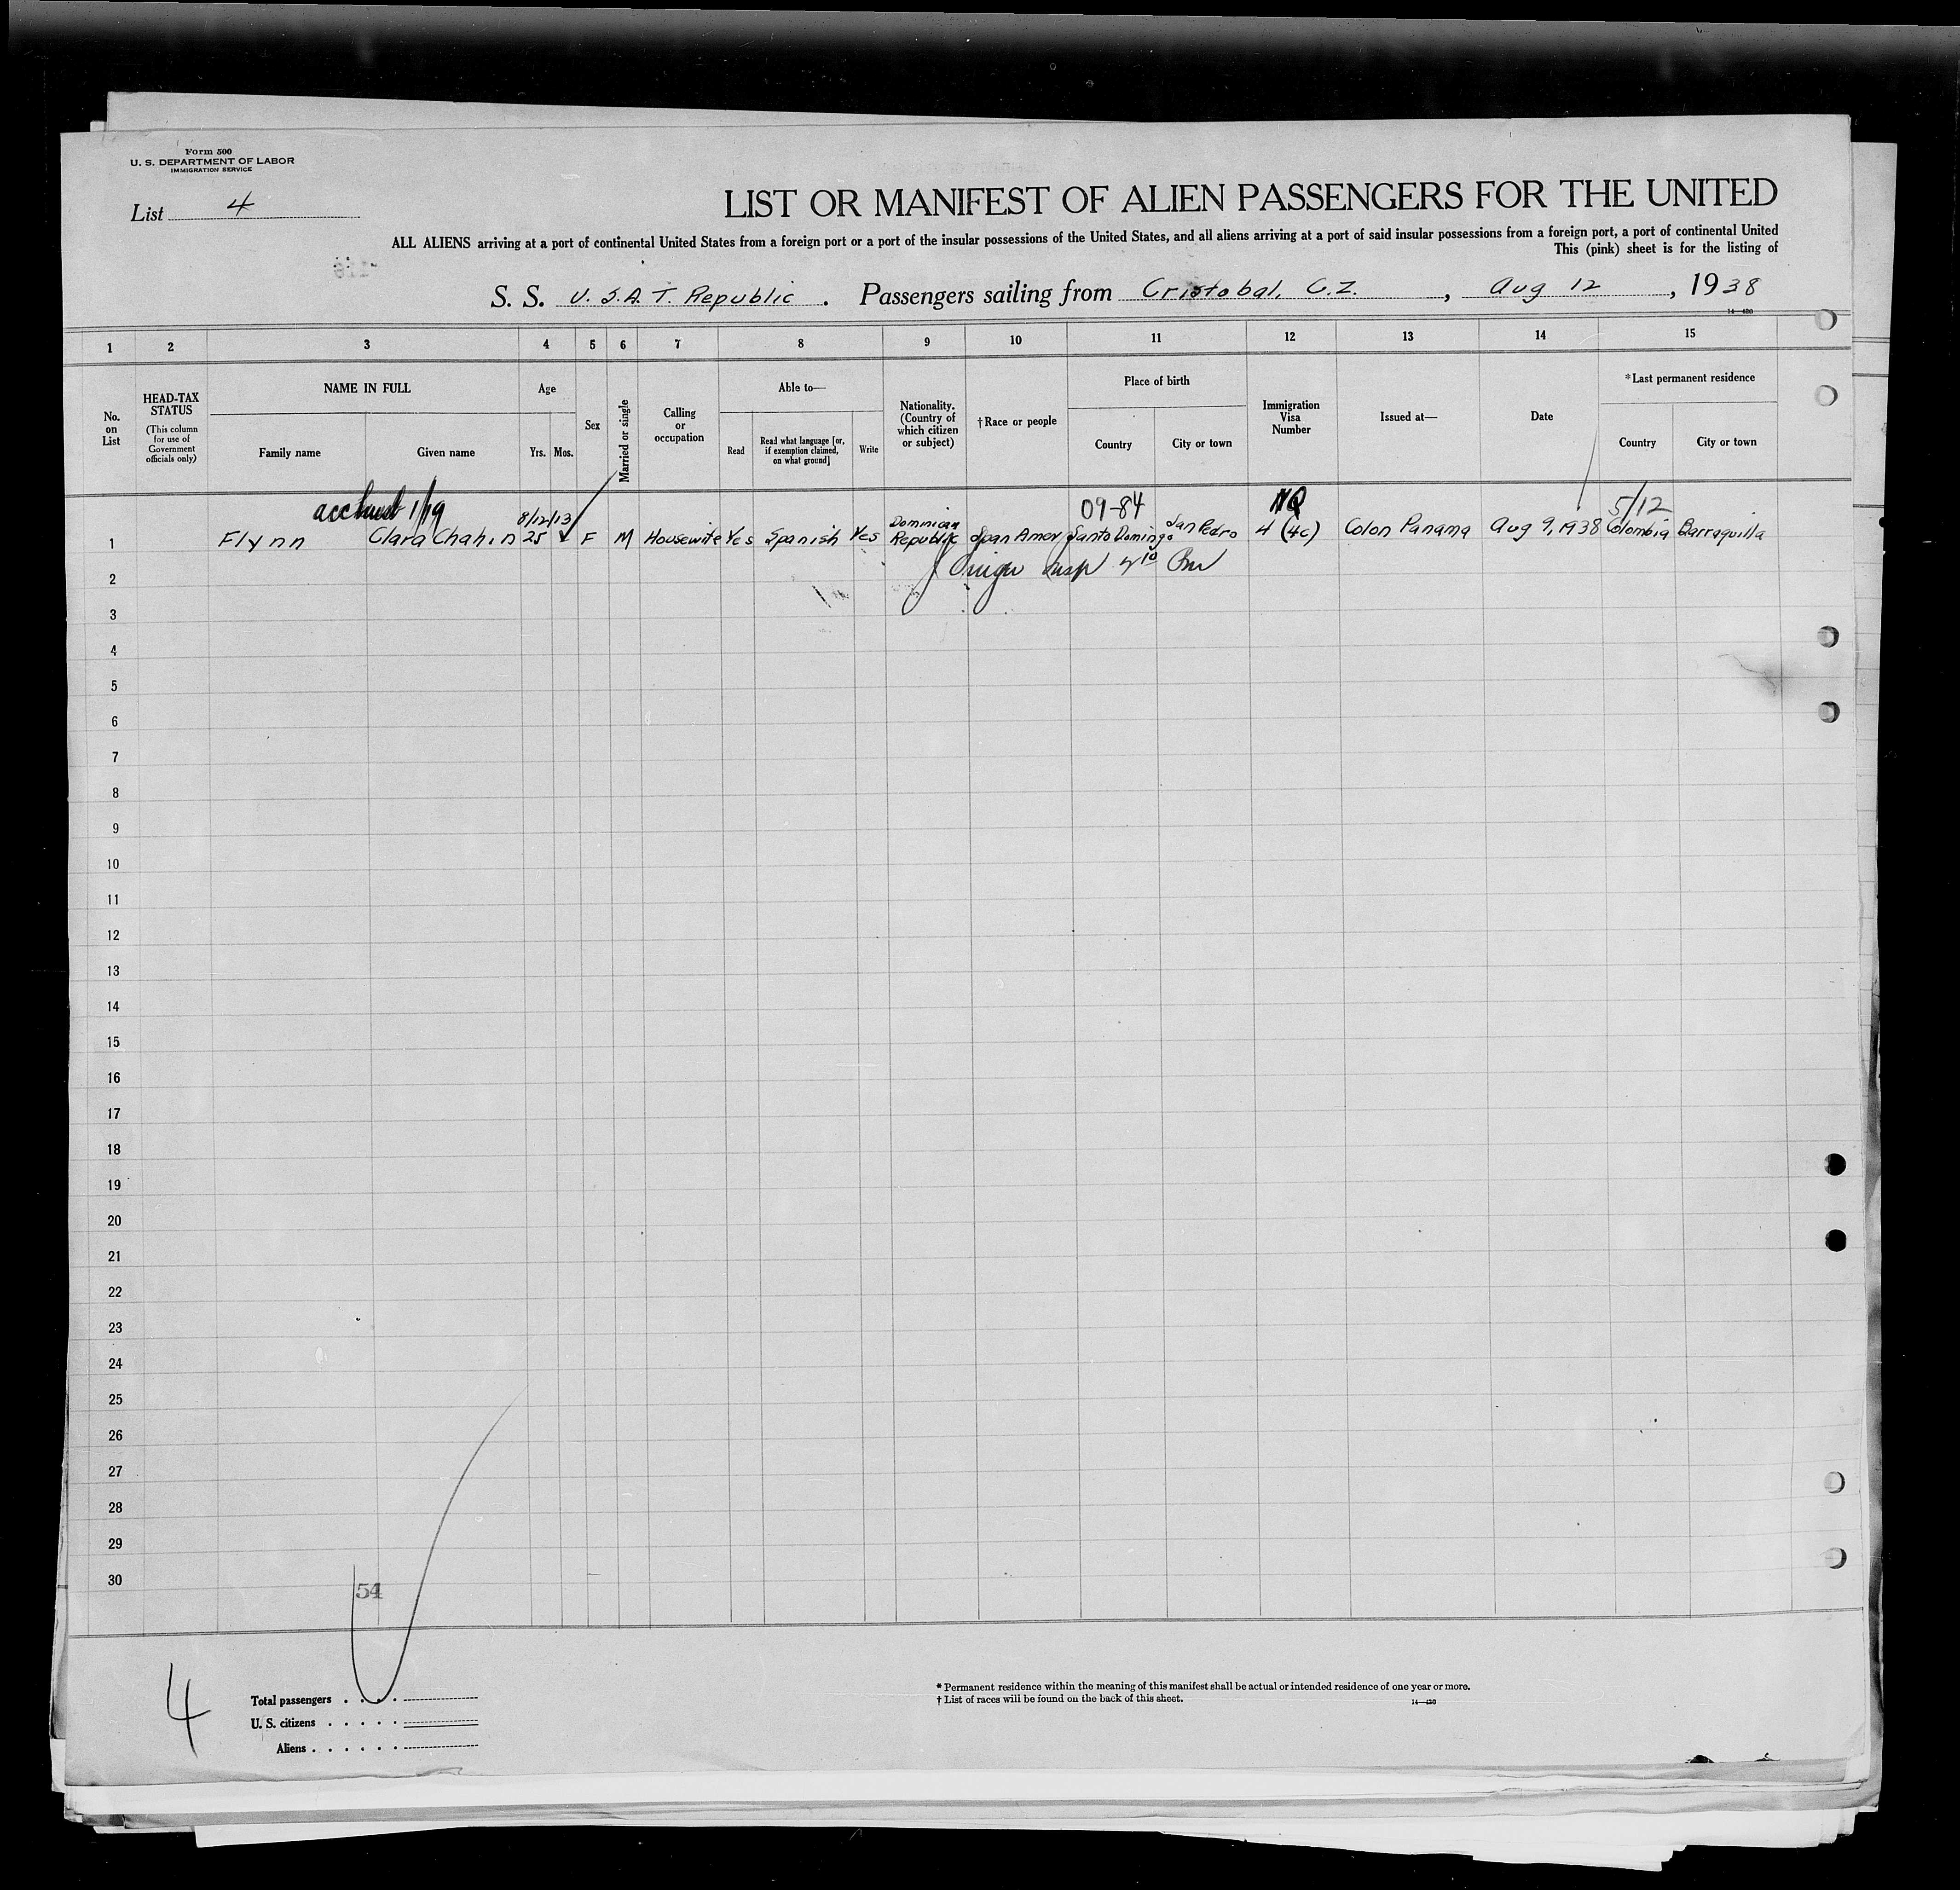 Form 500
U. S. DEPARTMENT OF LABOR
IMMIGRATION SERVICE
List 4
LIST OR MANIFEST OF ALIEN PASSENGERS FOR THE UNITED
ALL ALIENS arriving at a port of continental United States from a foreign port or a port of the insular possessions of the United States, and all aliens arriving at a port of said insular possessions from a foreign port, a port of continental United
This (pink) sheet is for the listing of
S. S. U. S. A. T. Republic . Passengers sailing from Cristobal, C. Z. , Aug 12 , 1938
1 2 3 4 5 6 7 8 9 10 11 12 13 14 15
No. on List
HEAD-TAX STATUS
(This column for use of Government officials only)
NAME IN FULL
Family name Given name
Age
Yrs. Mos.
Sex
Married or single
Calling or occupation
Able to—
Read
Read what language [or, if exemption claimed, on what ground]
Write
Nationality. (Country of which citizen or subject)
†Race or people
Place of birth
Country City or town
Immigration Visa Number
Issued at—
Date
*Last permanent residence
Country City or town
1/19 8/12/13 09-84 NQ 5/12
1 Flynn Clara Chahin 25 F M Housewife Yes Spanish Yes Dominican Republic Span Amer Santo Domingo San Pedro 4 (4c) Colon Panama Aug 9, 1938 Colombia Barraquilla
2
3
4
5
6
7
8
9
10
11
12
13
14
15
16
17
18
19
20
21
22
23
24
25
26
27
28
29
30
54
4
Total passengers
U. S. citizens
Aliens
* Permanent residence within the meaning of this manifest shall be actual or intended residence of one year or more.
† List of races will be found on the back of this sheet.